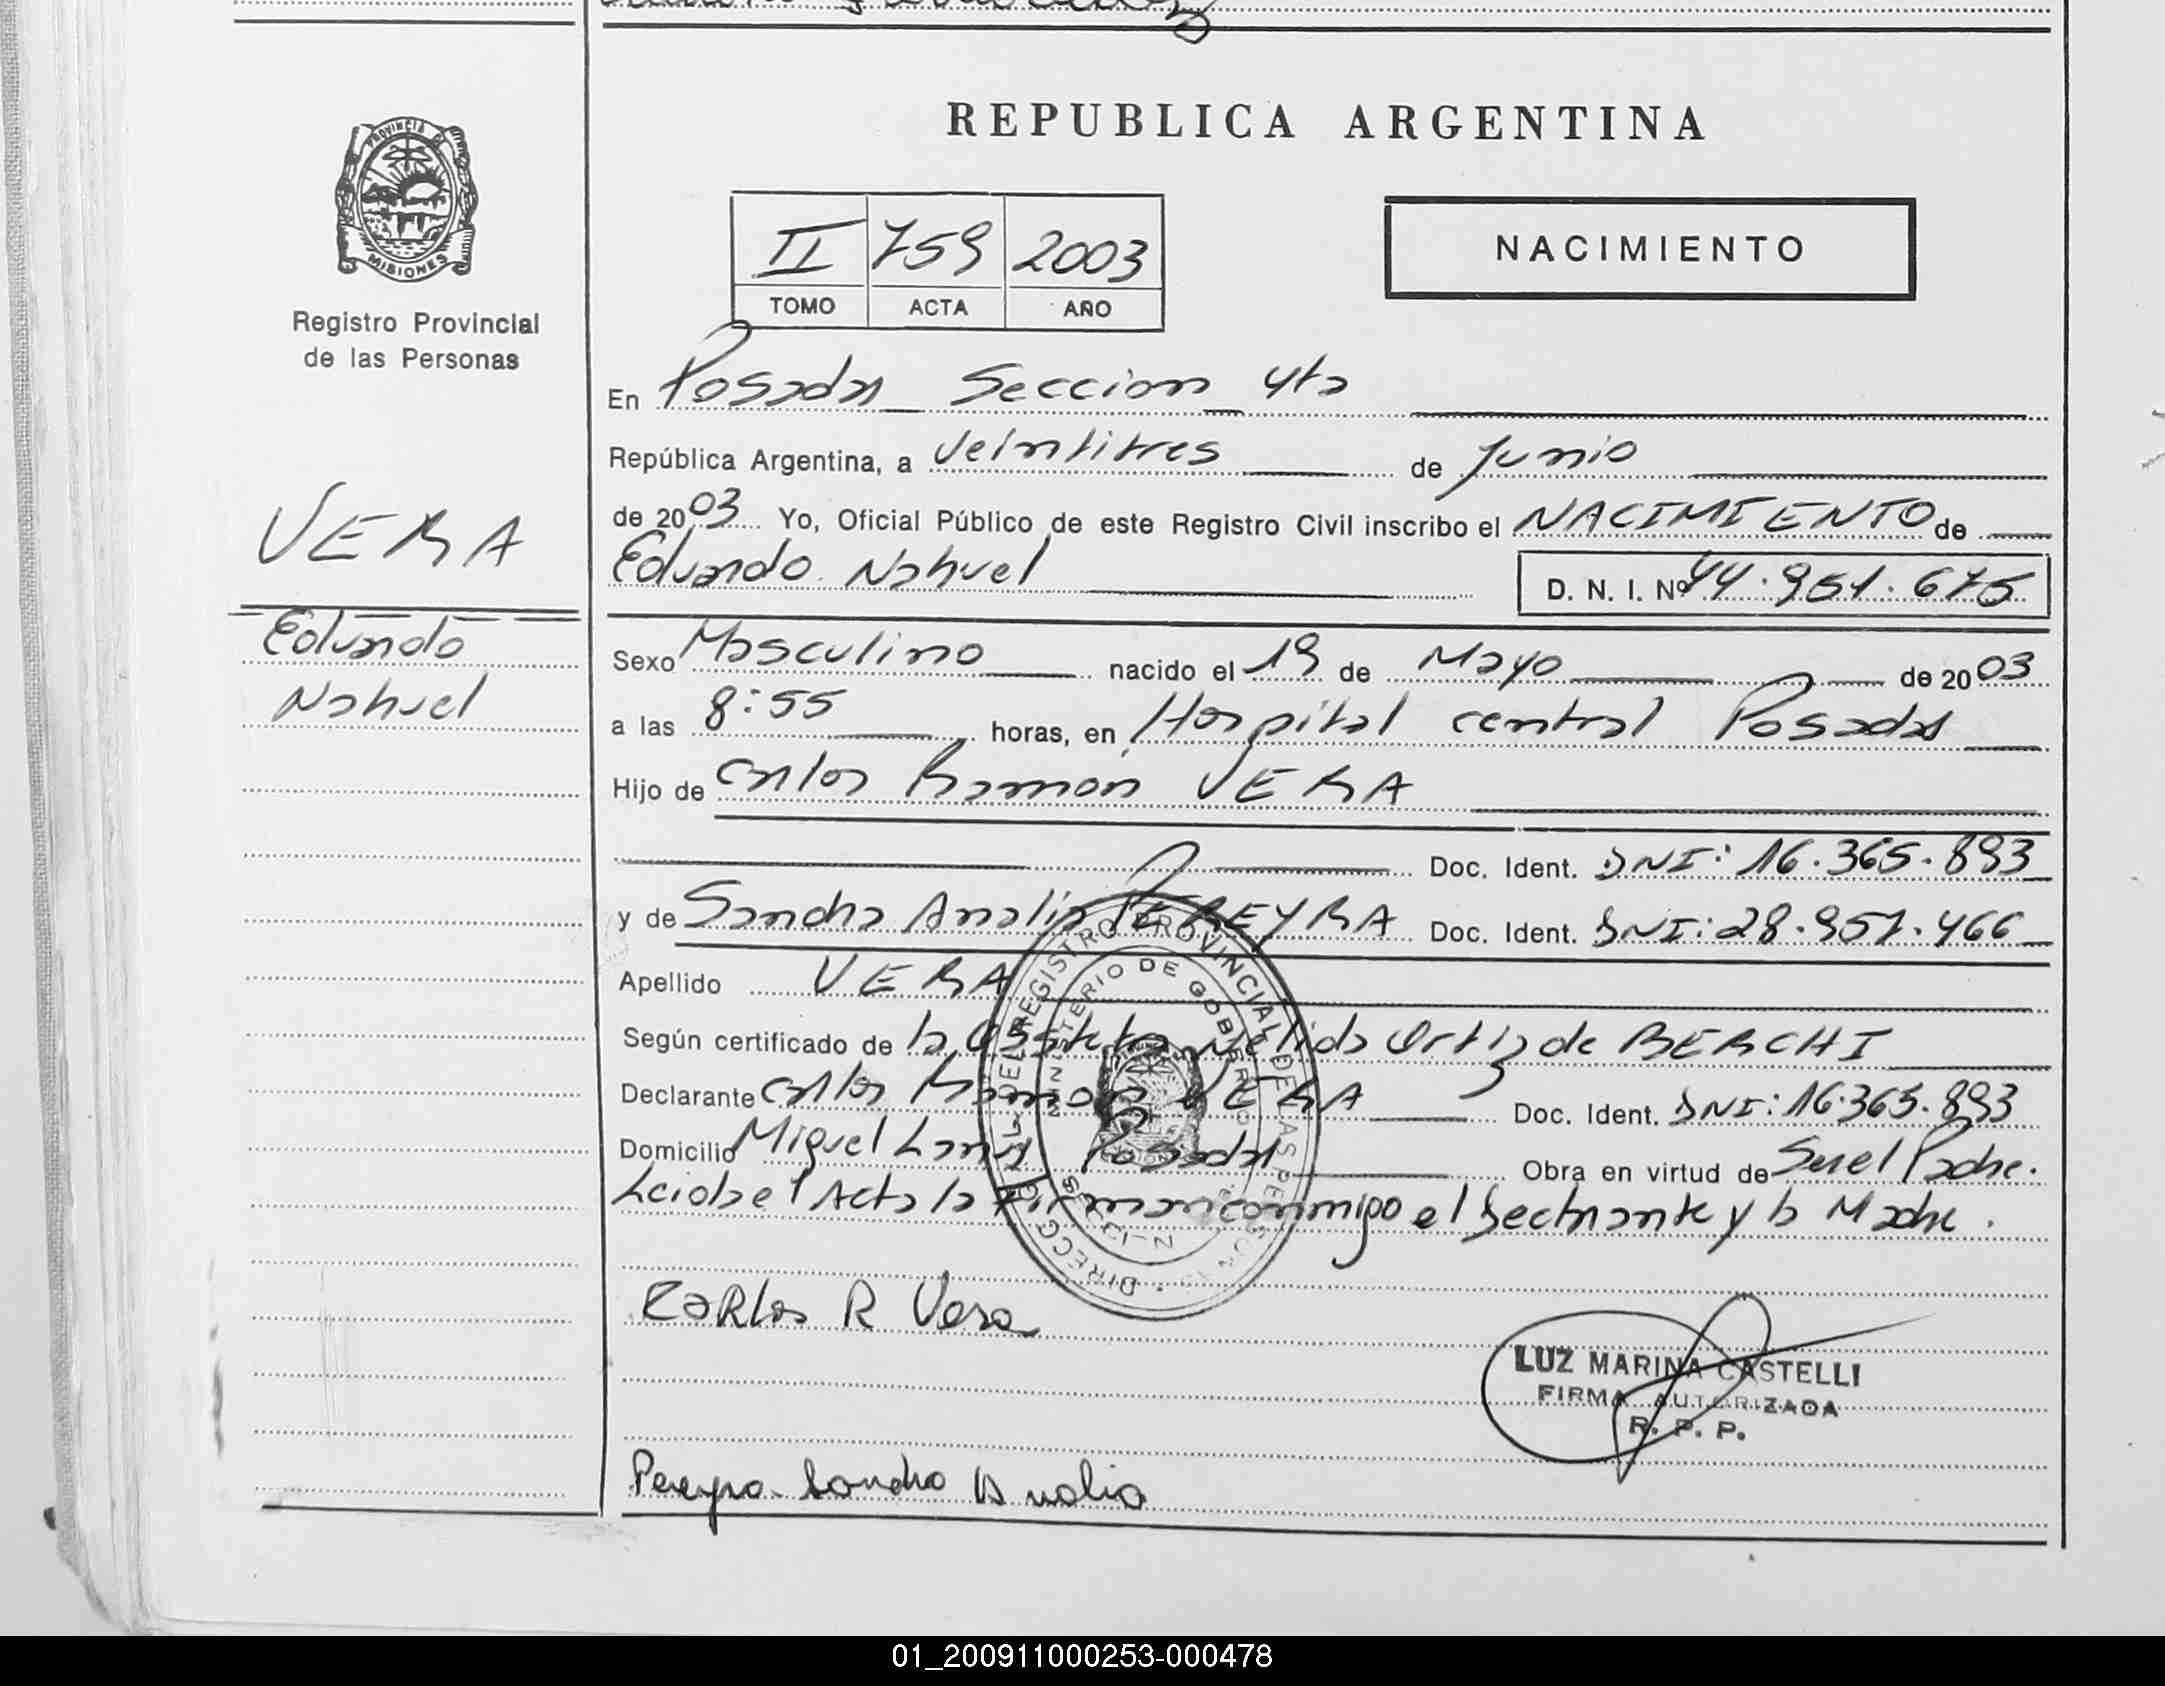 REPUBLICA ARGENTINA
PROVINCIA DE
MISIONES
Registro Provincial
de las Personas
NACIMIENTO
II 759 2003
TOMO ACTA AÑO
VERA
Eduardo
Nahuel
En Posadas Seccion 4ta
República Argentina, a Veintitres de Junio
de 2003 Yo, Oficial Público de este Registro Civil inscribo el NACIMIENTO de
Eduardo Nahuel D. N. I. Nº 44.951.675
Sexo Masculino nacido el 19 de Mayo de 2003
a las 8:55 horas, en Hospital central Posadas
Hijo de Carlos Ramon VERA
Doc. Ident. DNI: 16.365.893
y de Sandra Analia PEREYRA Doc. Ident. DNI: 28.951.466
Apellido VERA
Según certificado de la Obstetra Nelida Ortiz de BERCHI
Declarante Carlos Ramon VERA Doc. Ident. DNI: 16.365.893
Domicilio Miguel Lanus Posadas Obra en virtud de Ser el Padre.
Leida el Acta la Firman conmigo el Declarante y la Madre.
DIRECC. GRAL. DEL REGISTRO PROVINCIAL DE LAS PERSONAS
MINISTERIO DE GOBIERNO
CARLOS R Vera
LUZ MARINA CASTELLI
FIRMA AUTORIZADA
R. P. P.
Pereyra Sandra Analia
01_200911000253-000478